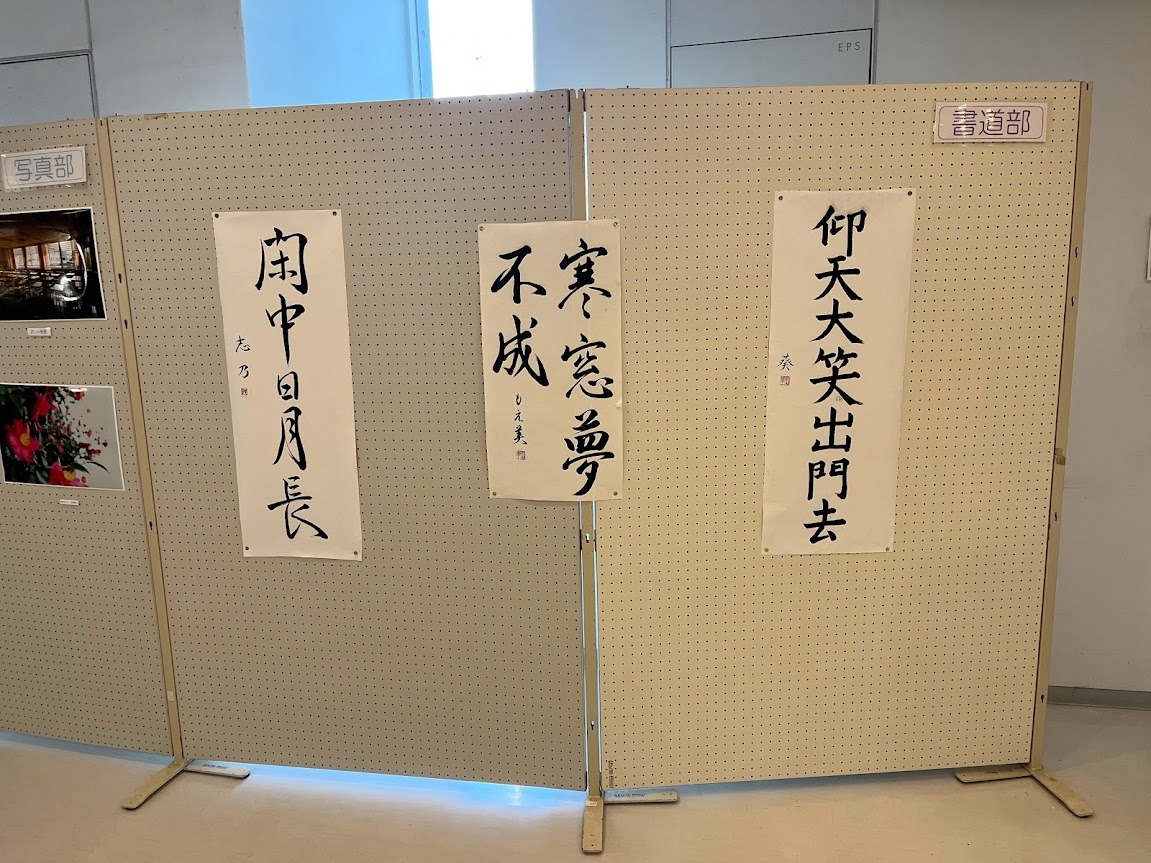 EPS
書道部
写真部
仰天大笑出門去
葵
寒窓夢
不成
閑中日月長
志乃